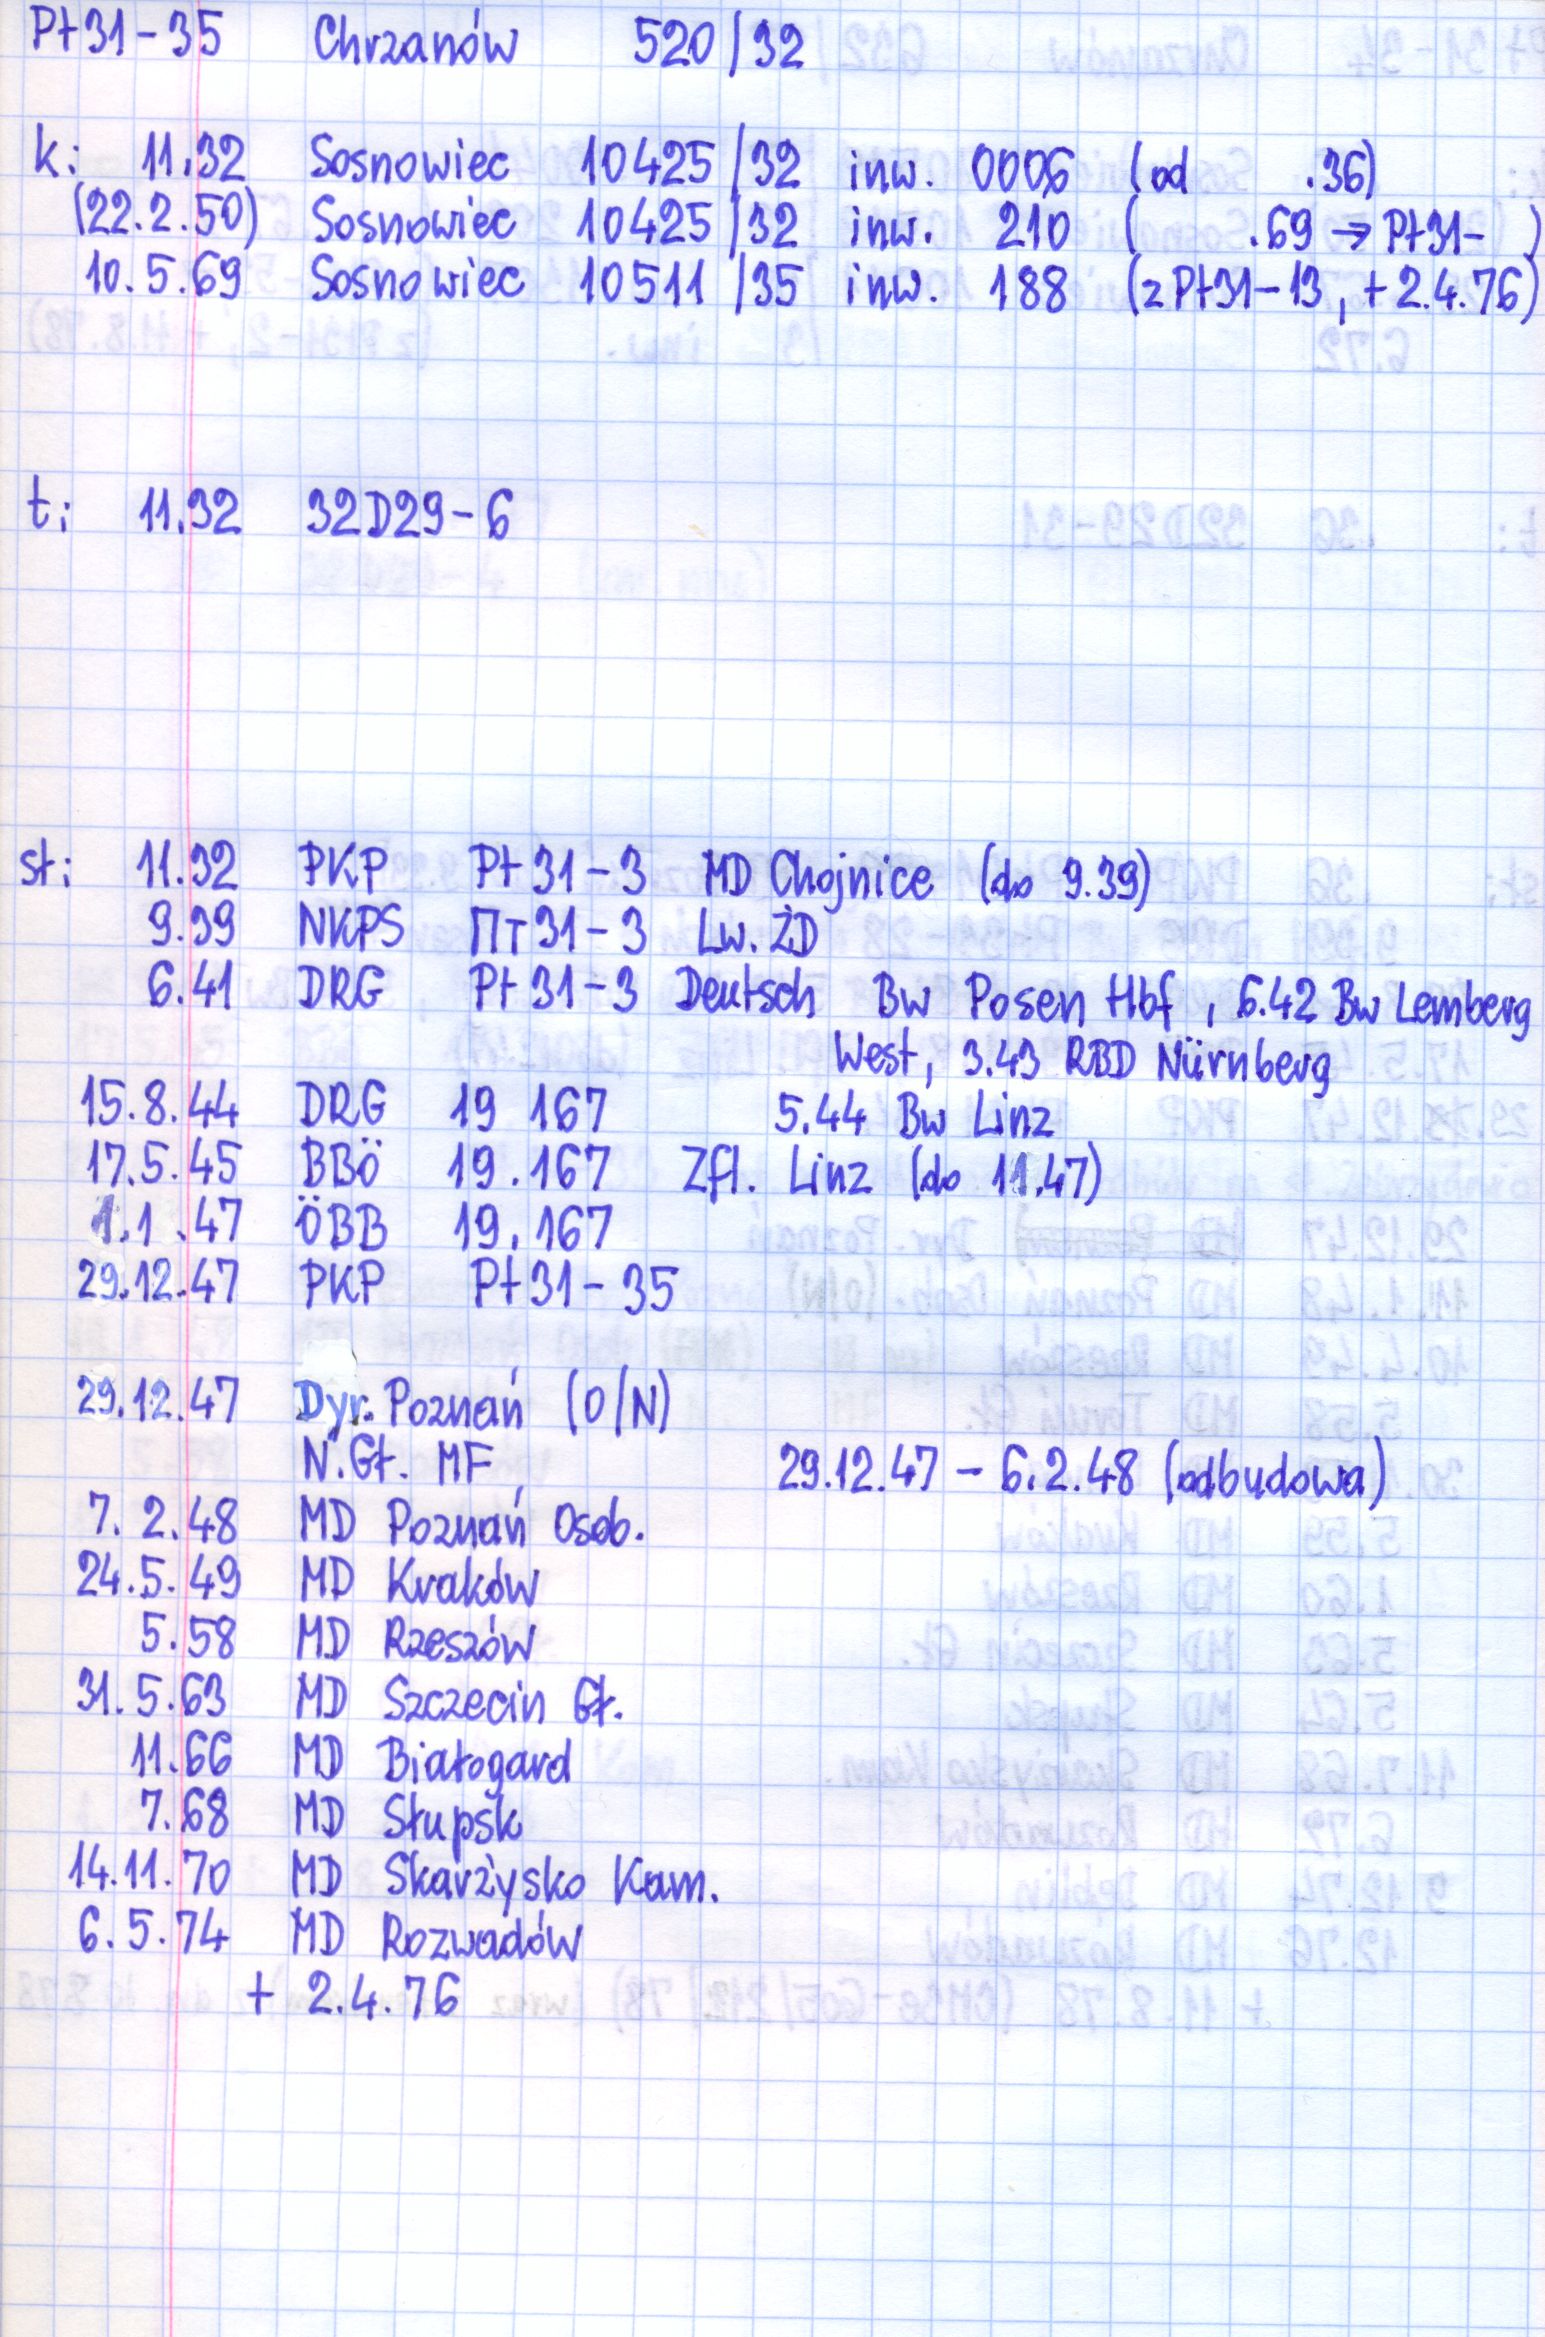 Pt31-35 Chrzanów 520/32
k: 11.32 Sosnowiec 10425/32 inw. 0006 (od .36)
(22.2.50) Sosnowiec 10425/32 inw. 210 ( .69 → Pt31- )
10.5.69 Sosnowiec 10511/35 inw. 188 (z Pt31-13, + 2.4.76)
t: 11.32 32D29-6
st: 11.32 PKP Pt31-3 MD Chojnice (do 9.39)
9.39 NKPS Пт31-3 Lw. ŻD
6.41 DRG Pt31-3 Deutsch Bw Posen Hbf, 6.42 Bw Lemberg
West, 3.43 RBD Nürnberg
15.8.44 DRG 19 167 5.44 Bw Linz
17.5.45 BBÖ 19.167 Zfl. Linz (do 11.47)
1.1.47 ÖBB 19.167
29.12.47 PKP Pt31-35
29.12.47 Dyr. Poznań (O/N)
N.Gł. MF 29.12.47 - 6.2.48 (odbudowa)
7.2.48 MD Poznań Osob.
24.5.49 MD Kraków
5.58 MD Rzeszów
31.5.63 MD Szczecin Gł.
11.66 MD Białogard
7.68 MD Słupsk
14.11.70 MD Skarżysko Kam.
6.5.74 MD Rozwadów
+ 2.4.76